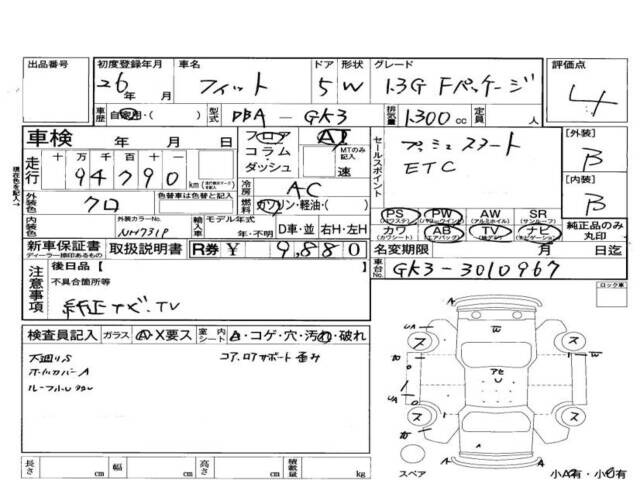 出品番号 初度登録年月 車名 ドア 形状 グレード 評価点
26年 月 フィット 5 W 1.3G Fパッケージ 4
車歴 自家用・( ) 型式 DBA-GK3 排気量 1300cc 定員 人
車検 年 月 日
フロア コラム・ダッシュ AT MTのみ記入 速
セールスポイント プッシュスタート
ETC
[外装] B
走行 十 万 千 百 十 一
94790 km
冷房 AC
[内装] B
外装色 クロ 色替車は色替と記入
燃料 ガソリン・軽油・( )
PS PW AW SR
(パワステ) (パワーウインド) (アルミホイル) (サンルーフ)
カワ AB TV ナビ
(カワシート) (エアバッグ) (ナビゲーション)
純正品のみ丸印
内装色 外装カラーNo. NH731P 輸入車 モデル年式 年・不明 D車・並 右H・左H
新車保証書 取扱説明書 R券 ¥ 9,880
ディーラー捺印あるもの
名変期限 月 日迄
注意事項 後日品[ ]
不具合箇所等
純正ナビ.TV
車台No. GK3-3010967
ロック車
検査員記入 ガラス A・X要ス 室内シート A・コゲ・穴・汚れ・破れ
下廻りS
コア.ロアサポート歪み
ホイルカバーA
スペア
小A有・小B有
長さ cm 幅 cm 高さ cm 積載量 kg
現在色を記入→